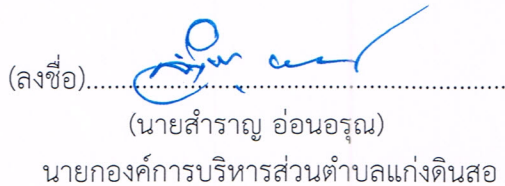 (ลงชื่อ)......................................................
(นายสำราญ อ่อนอรุณ)
นายกองค์การบริหารส่วนตำบลแก่งดินสอ